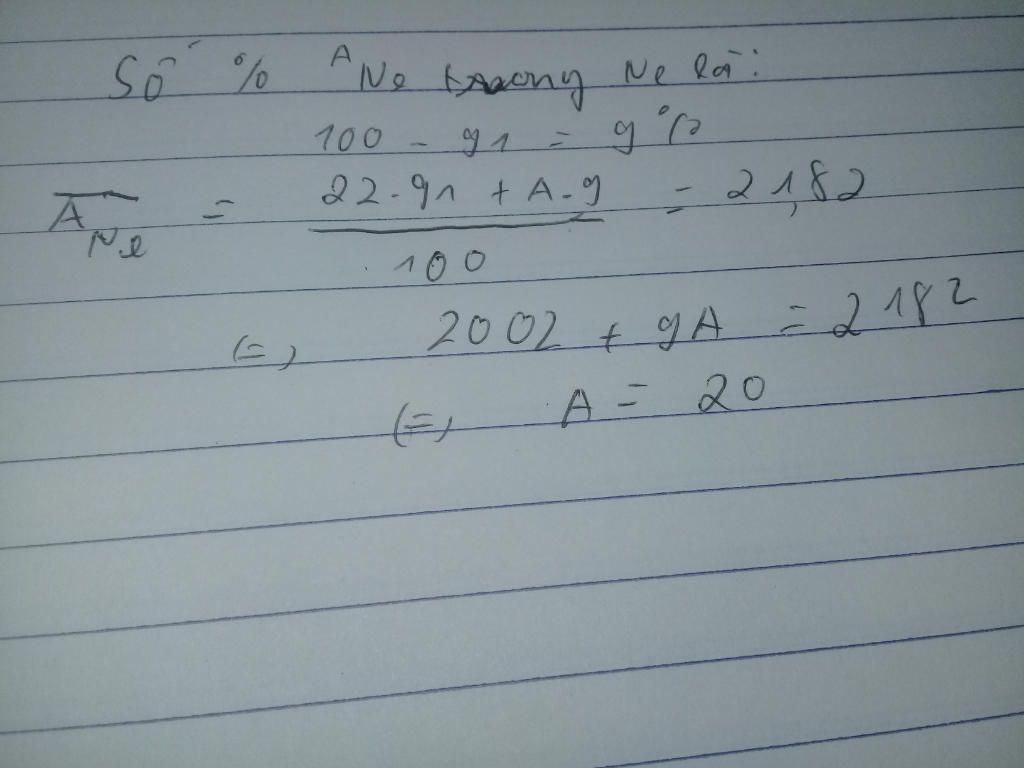 Số % ᴬNe trong Ne là:
100 - 91 = 9%
A̅ Ne = (22.91 + A.9) / 100 = 21,82
(=) 2002 + 9A = 2182
(=) A = 20